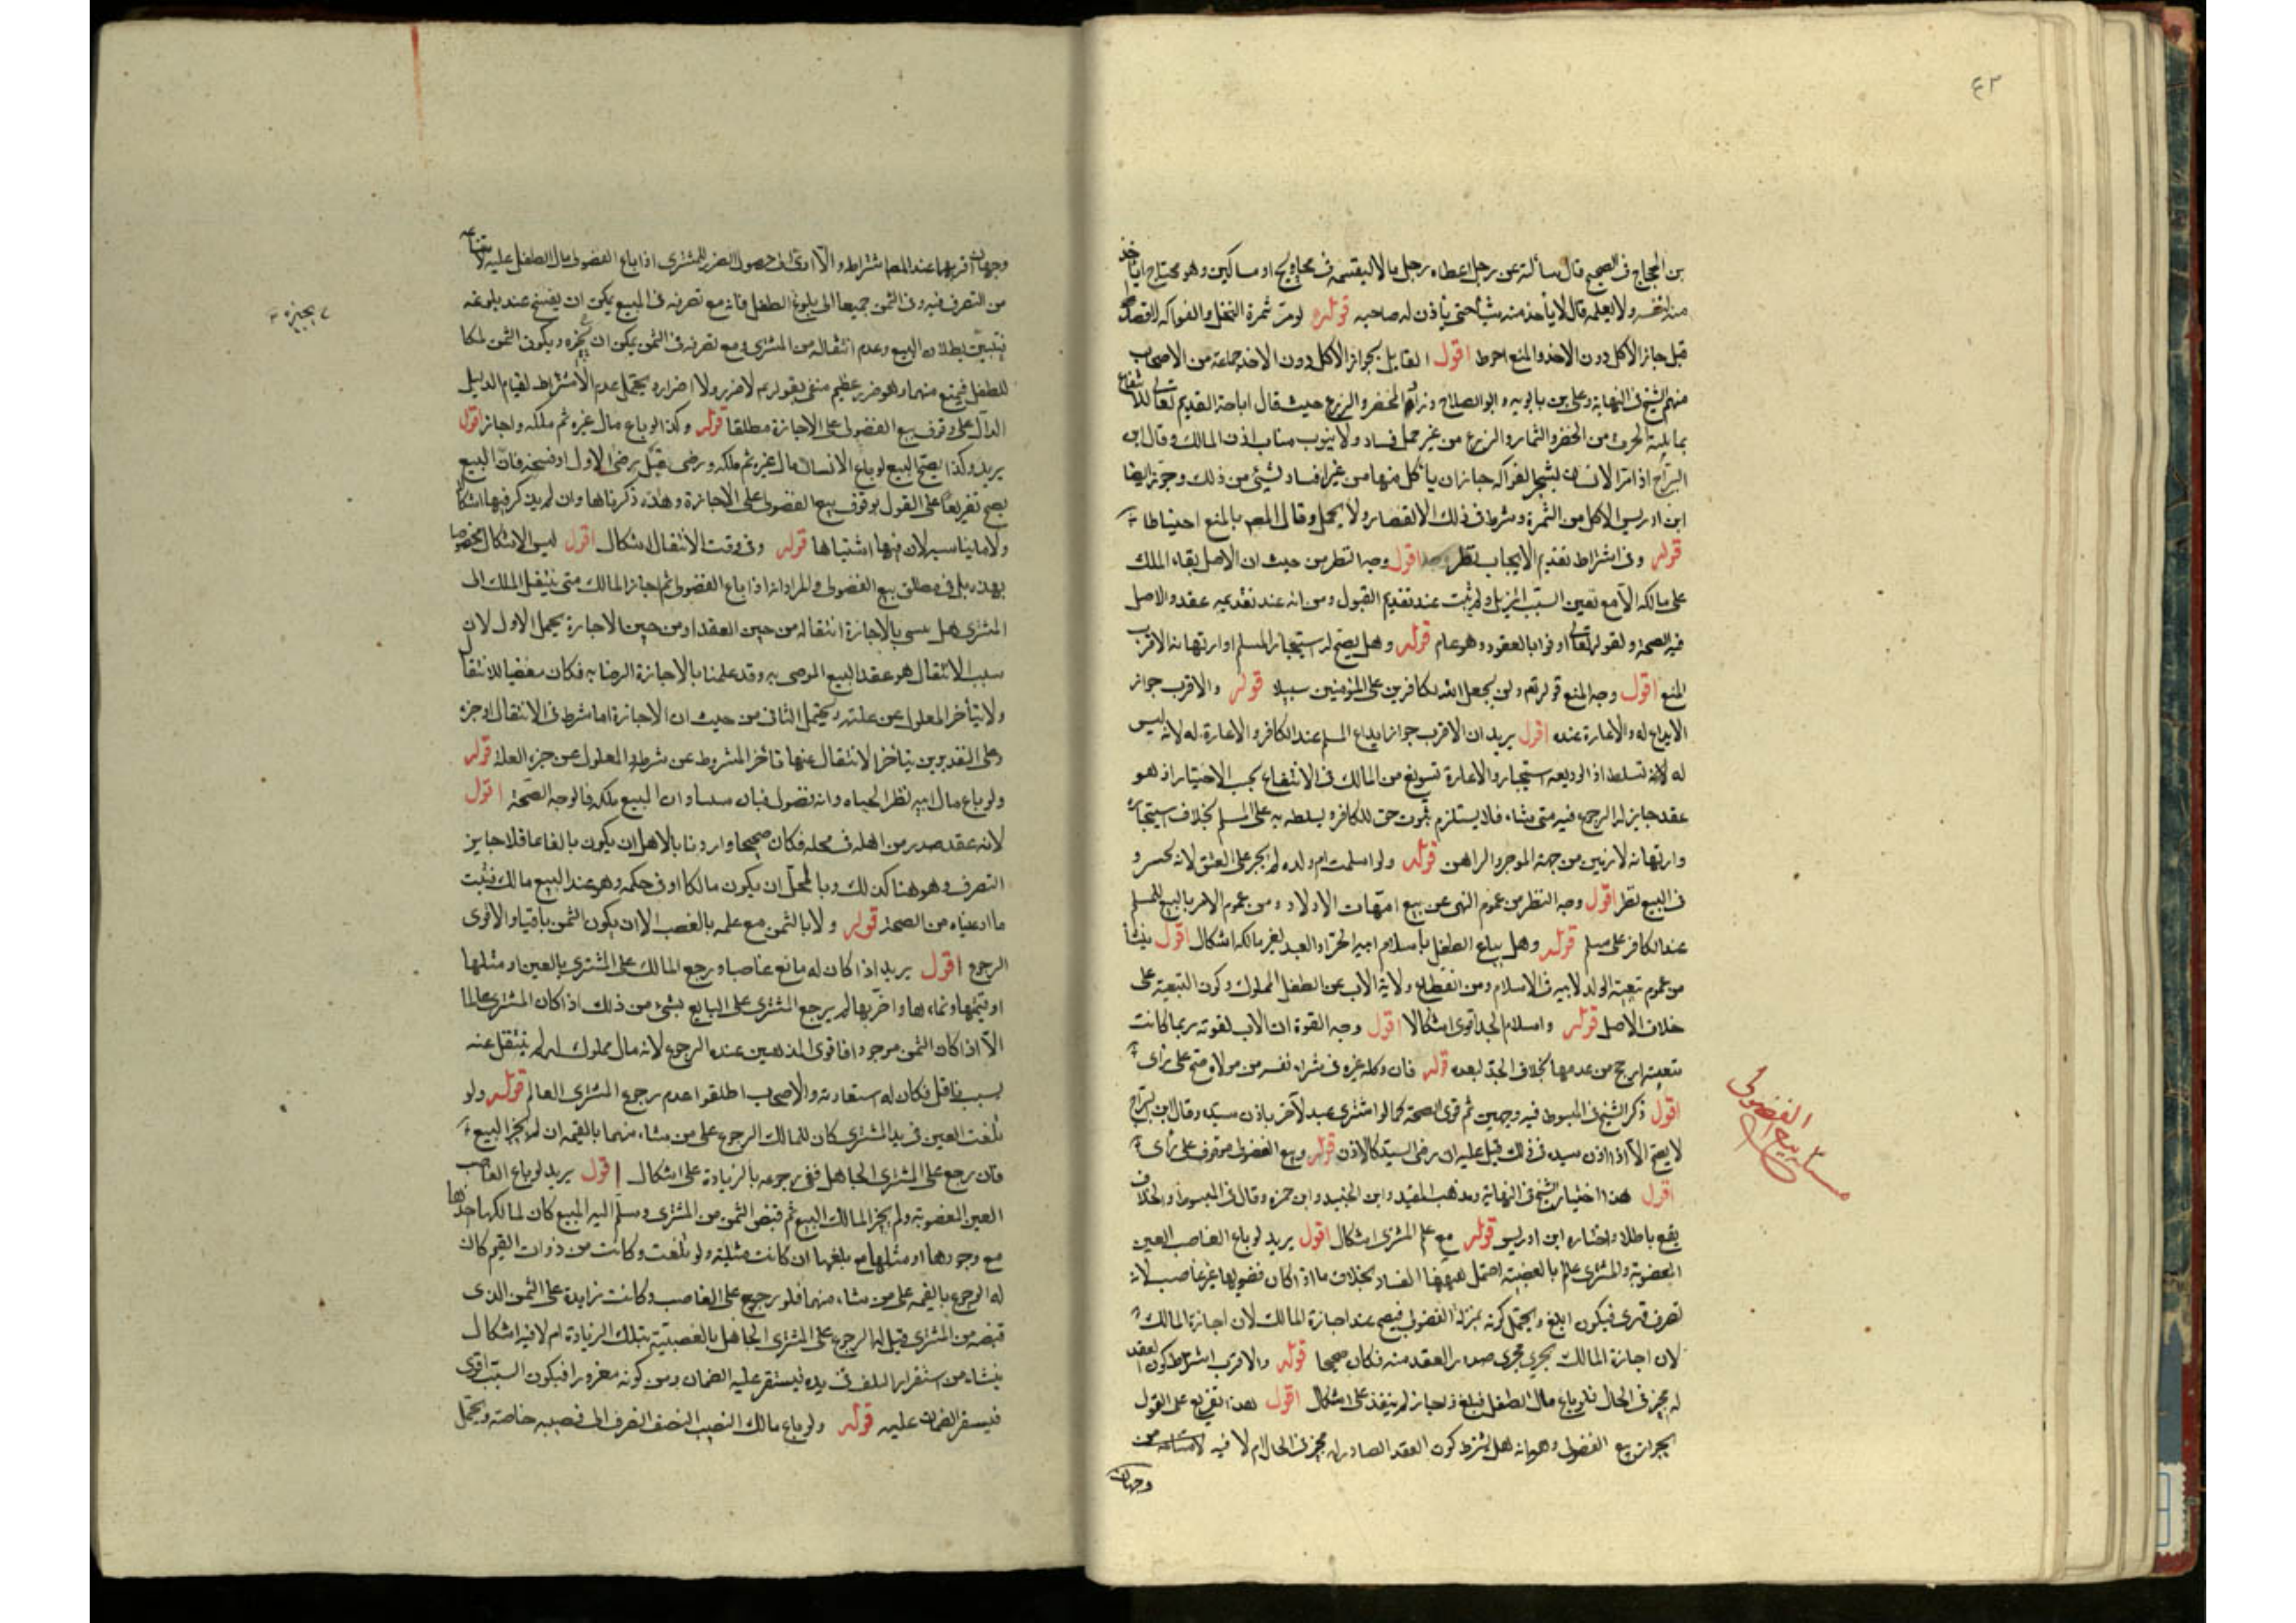 ٤٣
بن الحجاج فى الصحيح قال سألته عن رجل اعطاه رجل مالا ليقسمه فى محاويج او مساكين وهو محتاج ايأخذ
منه لنفسه ولا يعلمه قال لا يأخذ منه شيأ حتى يأذن له صاحبه قوله لو مر بثمرة النخل والفواكه لا قصدا
قيل جاز الاكل دون الاخذ والمنع احوط اقول القايل بجواز الاكل دون الاخذ جماعة من الاصحاب
منهم الشيخ فى النهاية وعلى بن بابويه وابو الصلاح وزاد الخضر والزرع حيث قال اباحة القديم تعالى للانتفاع
بما يلية الحرث من الخضر والثمار والزرع من غير حمل فساد ولا ينوب مناب اذن المالك وقال ابن
البراج اذا مر الانسان بشجر الفواكه جاز ان يأكل منها من غير افساد لشيئ من ذلك وجوز ايضا
ابن ادريس الاكل من الثمرة وشرط فى ذلك الا يقصد ولا يحمل وقال المصـ بالمنع احتياطا
قوله وفى اشتراط تقديم الايجاب نظر اقول وجه النظر من حيث ان الاصل بقاء الملك
على مالكه الا مع تعين السبب المزيل ولم يثبت عند تقديم القبول ومن انه عند تقديمه عقد والاصل
فيه الصحة ولقوله تعالى اوفوا بالعقود وهو عام قوله وهل يصح له استيجار المسلم او ارتهانه الاقرب
المنع اقول وجه المنع قوله تعـ ولن يجعل الله للكافرين على المؤمنين سبيلا قوله والاقرب جواز
الايداع له والاعارة عنده اقول يريد ان الاقرب جواز ايداع المسلم عند الكافر والاعارة له لانه ليس
له لانه تسلط اذ الوديعه استيجار والاعارة تسويغ من المالك فى الانتفاع بحسب الاختيار اذ هو
عقد جايز له الرجوع فيه متى شاء فلا يستلزم ثبوت حق للكافر يسلطه به على المسلم بخلاف استيجاره
وارتهانه لازمين من جهة الموجر والراهن قوله ولو اسلمت ام ولده لم يجبر على العتق لانه تخسر و
فى البيع نظر اقول وجه النظر من عموم النهى عن بيع امهات الاولاد ومن عموم الامر بالبيع للمسلم
عند الكافر على مسلم قوله وهل يباع الطفل باسلام ابيه الحر او العبد لغير مالكه اشكال اقول ينشأ
من عموم تبعية الولد لابيه فى الاسلام ومن انقطاع ولاية الاب عن الطفل المملوك وكون التبعية على
خلاف الاصل قوله واسلام الجد اقوى اشكالا اقول وجه القوة ان الاب لقوته ربما كانت
تبعيته ارجح من عدمها بخلاف الجد لبعده قوله فان وكله غيره فى شراء نفسه من مولاه صح على رأى
اقول ذكر الشيخ فى المبسوط فيه وجهين ثم قوى الصحة كما لو اشترى عبد لآخر باذن سيده وقال ابن البراج
لا يصح الا اذا اذن سيده فى ذلك قبل عليه ان رضى السيد كالاذن قوله وبيع الفضولى موقوف على رأى
اقول هذا اختيار الشيخ فى النهاية ومذهب المفيد وابن الجنيد وابن حمزه وقال فى المبسوط والخلاف
يقع باطلا واختاره ابن ادريس قوله مع علم المشترى اشكال اقول يريد لو باع الغاصب العين
المغصوبة والمشترى عالم بالغصبية احتمل ههنا الفساد بخلاف ما اذا كان فضوليا غير غاصب لانه
تصرف قوى فيكون ابلغ ويحتمل كونه بمنزلة الفضولى فيصح عند اجازة المالك لان اجازة المالك
لان اجازة المالك يجرى مجرى صدور العقد منه فكان صحيحا قوله والاقرب اشتراط كون العقد
له مجيز فى الحال فلو باع مال الطفل فبلغ واجاز لم ينفذ على اشكال اقول هذا تفريع على القول
بجواز بيع الفضولى وهو انه هل يشترط كون العقد الصادر له مجيز فى الحال ام لا فيه
وجهان
مسأله بيع الفضولى
وجهان اقربهما عند المصـ اشتراطه والا ادى الى حصول الضرر للمشترى اذا باع الفضولى مال الطفل عليه لامتناعه
من التصرف فيه وفى الثمن جميعا الى بلوغ الطفل فانه مع تصرفه فى المبيع يمكن ان يفسخ عند بلوغه
فتبين بطلان البيع وعدم انتقاله من المشترى ومع تصرفه فى الثمن يمكن ان يجيزه ويكون الثمن ملكا
للطفل فيمنع منهما وهو ضرر عظيم منفى بقوله عم لا ضرر ولا اضرار ويحتمل عدم الاشتراط لقيام الدليل
الدال على وقوف بيع الفضولى على الاجازة مطلقا قوله وكذا لو باع مال غيره ثم ملكه واجاز اقول
يريد وكذا يصح البيع لو باع الانسان مال غيره ثم ملكه ورضى قبل رضى الاول او فسخه فان البيع
يصح تفريعا على القول بوقوف بيع الفضولى على الاجازة وهذه ذكرناها وان لم يذكر فيها اشكا
ولا ما يناسبه لان فيها اشتباها قوله وفى وقت الانتقال اشكال اقول ليس الاشكال مخصوصا
بهذه بل فى مطلق بيع الفضولى والمراد انه اذا باع الفضولى ثم اجاز المالك متى ينتقل الملك الى
المشترى هل بالاجازة انتقاله من حين العقد او من حين الاجازة يحتمل الاول لان
سبب الانتقال هو عقد البيع المرضى به وقد علمنا بالاجازة الرضا به فكان مفضيا للانتقال
ولا يتأخر المعلول عن علته ويحتمل الثانى من حيث ان الاجازة اما شرط فى الانتقال او جزء
وعلى التقديرين يتأخر الانتقال عنها تأخر المشروط عن شرطه والمعلول عن جزء العلة قوله
ولو باع مال ابيه لظن الحياه وانه فضولى فبان ميتا وان المبيع ملكه فالوجه الصحة اقول
لانه عقد صدر من اهله فى محله فكان صحيحا واردنا بالاهل ان يكون بالغا عاقلا جايز
التصرف وهو هنا كذلك وبالمحل ان يكون مالكا او فى حكمه وهو عند البيع مالك فثبت
ما ادعيناه من الصحة قوله ولا بالثمن مع علمه بالغصب الا ان يكون الثمن باقيا والاقوى
الرجوع اقول يريد اذا كان له بايع غاصبا ورجع المالك على المشترى بالعين او مثلها
او قيمتها ونماءها واخربها لم يرجع المشترى على البايع بشىء من ذلك اذا كان المشترى عالما
الا اذا كان الثمن موجودا فاقوى المذهبين عنده الرجوع لانه مال مملوك له لم ينتقل عنه
بسبب ناقل فكان له استعادته والاصحاب اطلقوا عدم رجوع المشترى العالم قوله ولو
تلفت العين فى يد المشترى كان للمالك الرجوع على من شاء منهما بالقيمه ان لم يجز البيع
فان رجع على المشترى الجاهل ففى رجوعه بالزيادة على اشكال اقول يريد لو باع الغاصب
العين المغصوبة ولم يجز المالك البيع ثم قبض الثمن من المشترى وسلم اليه المبيع كان لمالكها اخذها
مع وجودها او مثلها مع تلفها ان كانت مثلية ولو تلفت وكانت من ذوات القيم كان
له الرجوع بالقيمه على من شاء منهما فلو رجع على الغاصب وكانت زايدة على الثمن الذى
قبضه من المشترى قيل له الرجوع على المشترى الجاهل بالغصبية بتلك الزيادة ام لا فيه اشكال
ينشاء من استقرار التلف فى يده فيستقر عليه الضمان ومن كونه مغرورا فيكون السبب اقوى
فيستقر الضمان عليه قوله ولو باع مالك النصف النصف انصرف الى نصيبه خاصة ويحتمل
يجيزه